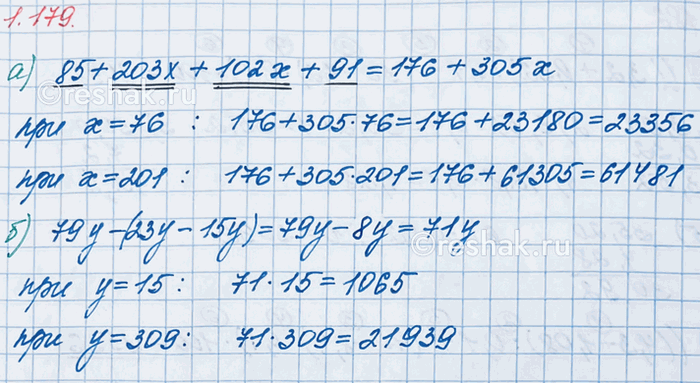 1.179.
а) 85+203x+102x+91=176+305x
при x=76 : 176+305·76=176+23180=23356
при x=201 : 176+305·201=176+61305=61481
б) 79y-(23y-15y)=79y-8y=71y
при y=15: 71·15=1065
при y=309: 71·309=21939
©reshak.ru